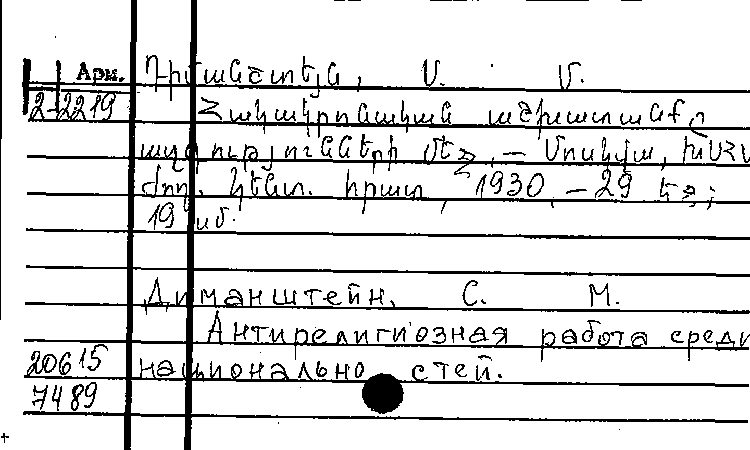 Арм. Դիմանշտեյն, Ս. Մ.
2-2219 Հակակրոնական աշխատանքը
ազգությունների մեջ, – Մոսկվա, ԽՍՀՄ
ժող. կենտ. հրատ, 1930, – 29 եջ;
19 սմ.
Диманштейн, С. М.
Антирелигиозная работа среди
20615 национально стей.
7489